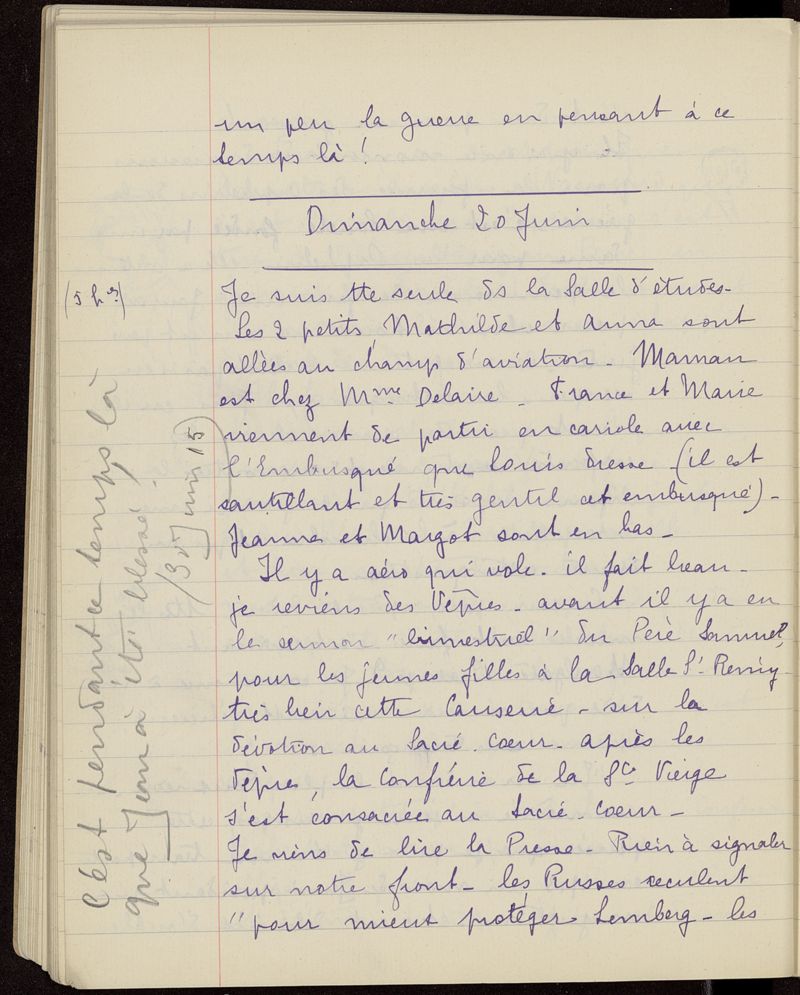 un peu la guerre en pensant à ce
temps là !
Dimanche 20 Juin
(5 hres)
Je suis tte seule ds la Salle d'études -
Les 2 petits, Mathilde et Anna sont
allées au champ d'aviation - Maman
est chez Mme Delaire - France et Marie
viennent de partir en cariole avec
l'Embusqué que Louis dresse (il est
sautillant et très gentil cet embusqué) -
Jeanne et Margot sont en bas -
Il y a aéro qui vole - il fait beau -
je reviens des Vêpres - avant il y a eu
le sermon "bimestriel" du Père
pour les jeunes filles à la Salle St Remy
très bien cette Causerie - sur la
dévotion au Sacré-Coeur - après les
Vêpres, la Confrérie de la Ste Vierge
s'est consacrée au Sacré-Coeur -
Je viens de lire la Presse - Rien à signaler
sur notre front - les Russes reculent
"pour mieux protéger Lemberg - les
C'est pendant ce temps là
que Jean a été blessé !
(30 Juin 15)